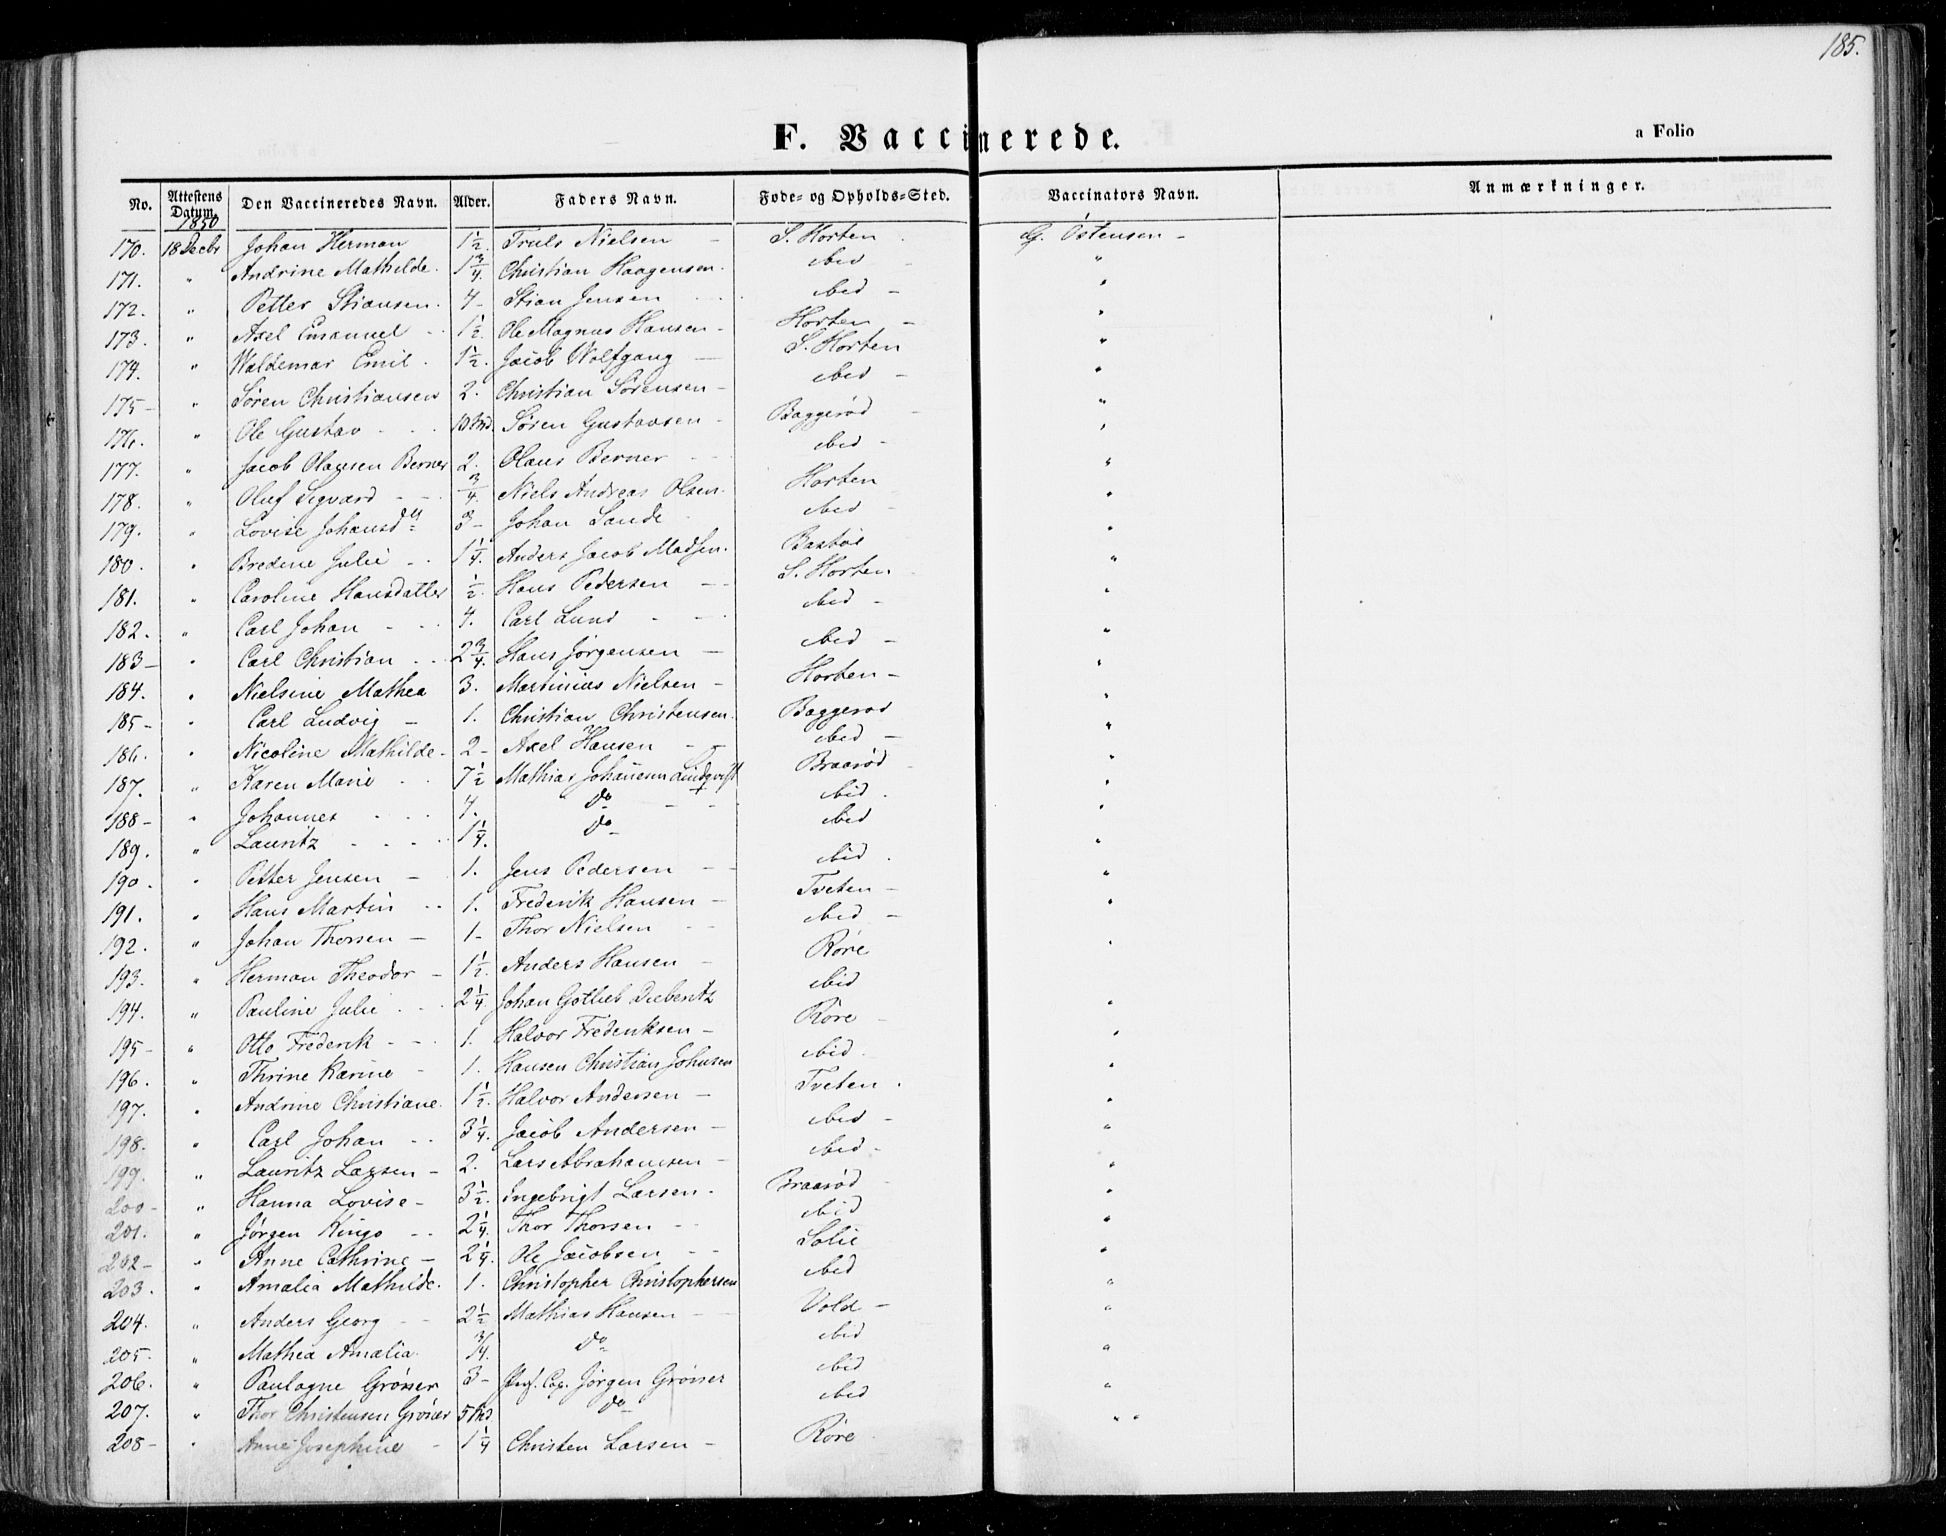 185.
F. Vaccinerede.
a Folio
No. Attestens Datum. Den Vaccineredes Navn. Alder. Faders Navn. Føde- og Opholds-Sted. Vaccinators Navn. Anmærkninger.
1850
170. 18 Decbr Johan Herman 1 1/2. Truls Nielsen - S. Horten G. Østensen -
171. " Andrine Mathilde. 1 3/4. Christian Haagensen. ibid - "
172. " Petter Stiansen. 4 - Stian Jensen ibid - "
173. " Axel Emanuel 1 1/2. Ole Magnus Hansen - Horten - "
174. " Waldemar Emil. 1 1/2. Jacob Wolfgang - S. Horten "
175 - " Søren Christiansen 2. Christian Sørensen - ibid - "
176. " Ole Gustav 10 Md. Søren Gustavsen - Baggerød - "
177. " Jacob Olausen Berner 2. Olaus Berner ibid - "
178. " Oluf Sigvard - 3/4. Niels Andreas Olsen. Horten "
179. " Lovise Johansdtr 3 - Johan Sande ibid - "
180. " Bredine Julie 1 1/4. Anders Jacob Madsen. Bastøe "
181. " Caroline Hansdatter 1/2. Hans Pedersen - S. Horten "
182. " Carl Johan - 4. Carl Lund - ibid - "
183 - " Carl Christian 2 3/4. Hans Jørgensen - ibid - "
184. " Nielsine Mathea 3. Martinius Nielsen - Horten - "
185 - " Carl Ludvig - 1. Christian Christensen. Baggerød "
186. " Nicoline Mathilde - 2 - Axel Hansen - ibid - "
187. " Karen Marie 7 1/2 Mathias Johansen Lindqvist Braarød "
188 - " Johannes 4. do ibid. "
189. " Lauritz 1 1/4. do ibid "
190. " Petter Jensen - 1. Jens Pedersen - ibid. "
191. " Hans Martin 1. Frederik Hansen - Tveten - "
192. " Johan Thorsen - 1 - Thor Nielsen ibid - "
193. " Herman Theodor - 1 1/2. Anders Hansen - Røre "
194. " Pauline Julie 2 1/4. Johan Gotlieb Dieberitz ibid "
195 - " Otto Frederik - 1. Halvor Frederiksen - Røre - "
196. " Thrine Karine - 1. Hansen Christian Johnsen ibid. "
197. " Andrine Christiane. 1 1/2. Halvor Andersen - Tveten. "
198. " Carl Johan 3 1/4. Jacob Andersen - ibid - "
199. " Lauritz Larsen - 2. Lars Abrahamsen - ibid - "
200 - " Hanna Lovise - 3 1/2. Ingebrigt Larsen. Braarød - "
201. " Jørgen Kingo 2 1/4. Thor Thorsen - ibid "
202 - " Anne Cathrine - 2 1/4. Ole Jacobsen Solie "
203. " Amalia Mathilde. 1. Christopher Christophersen ibid "
204. " Anders Georg 2 1/2 Mathias Hansen - Vold - "
205. " Mathea Amalia. 3/4. do ibid "
206. " Paulagne Grøner 3 - Cap. Jørgen Grøner ibid "
207. " Thor Christensen Grøner 5 Md. do ibid " "
208 - " Anne Josephine - 1 1/4 Christen Larsen - Røre -